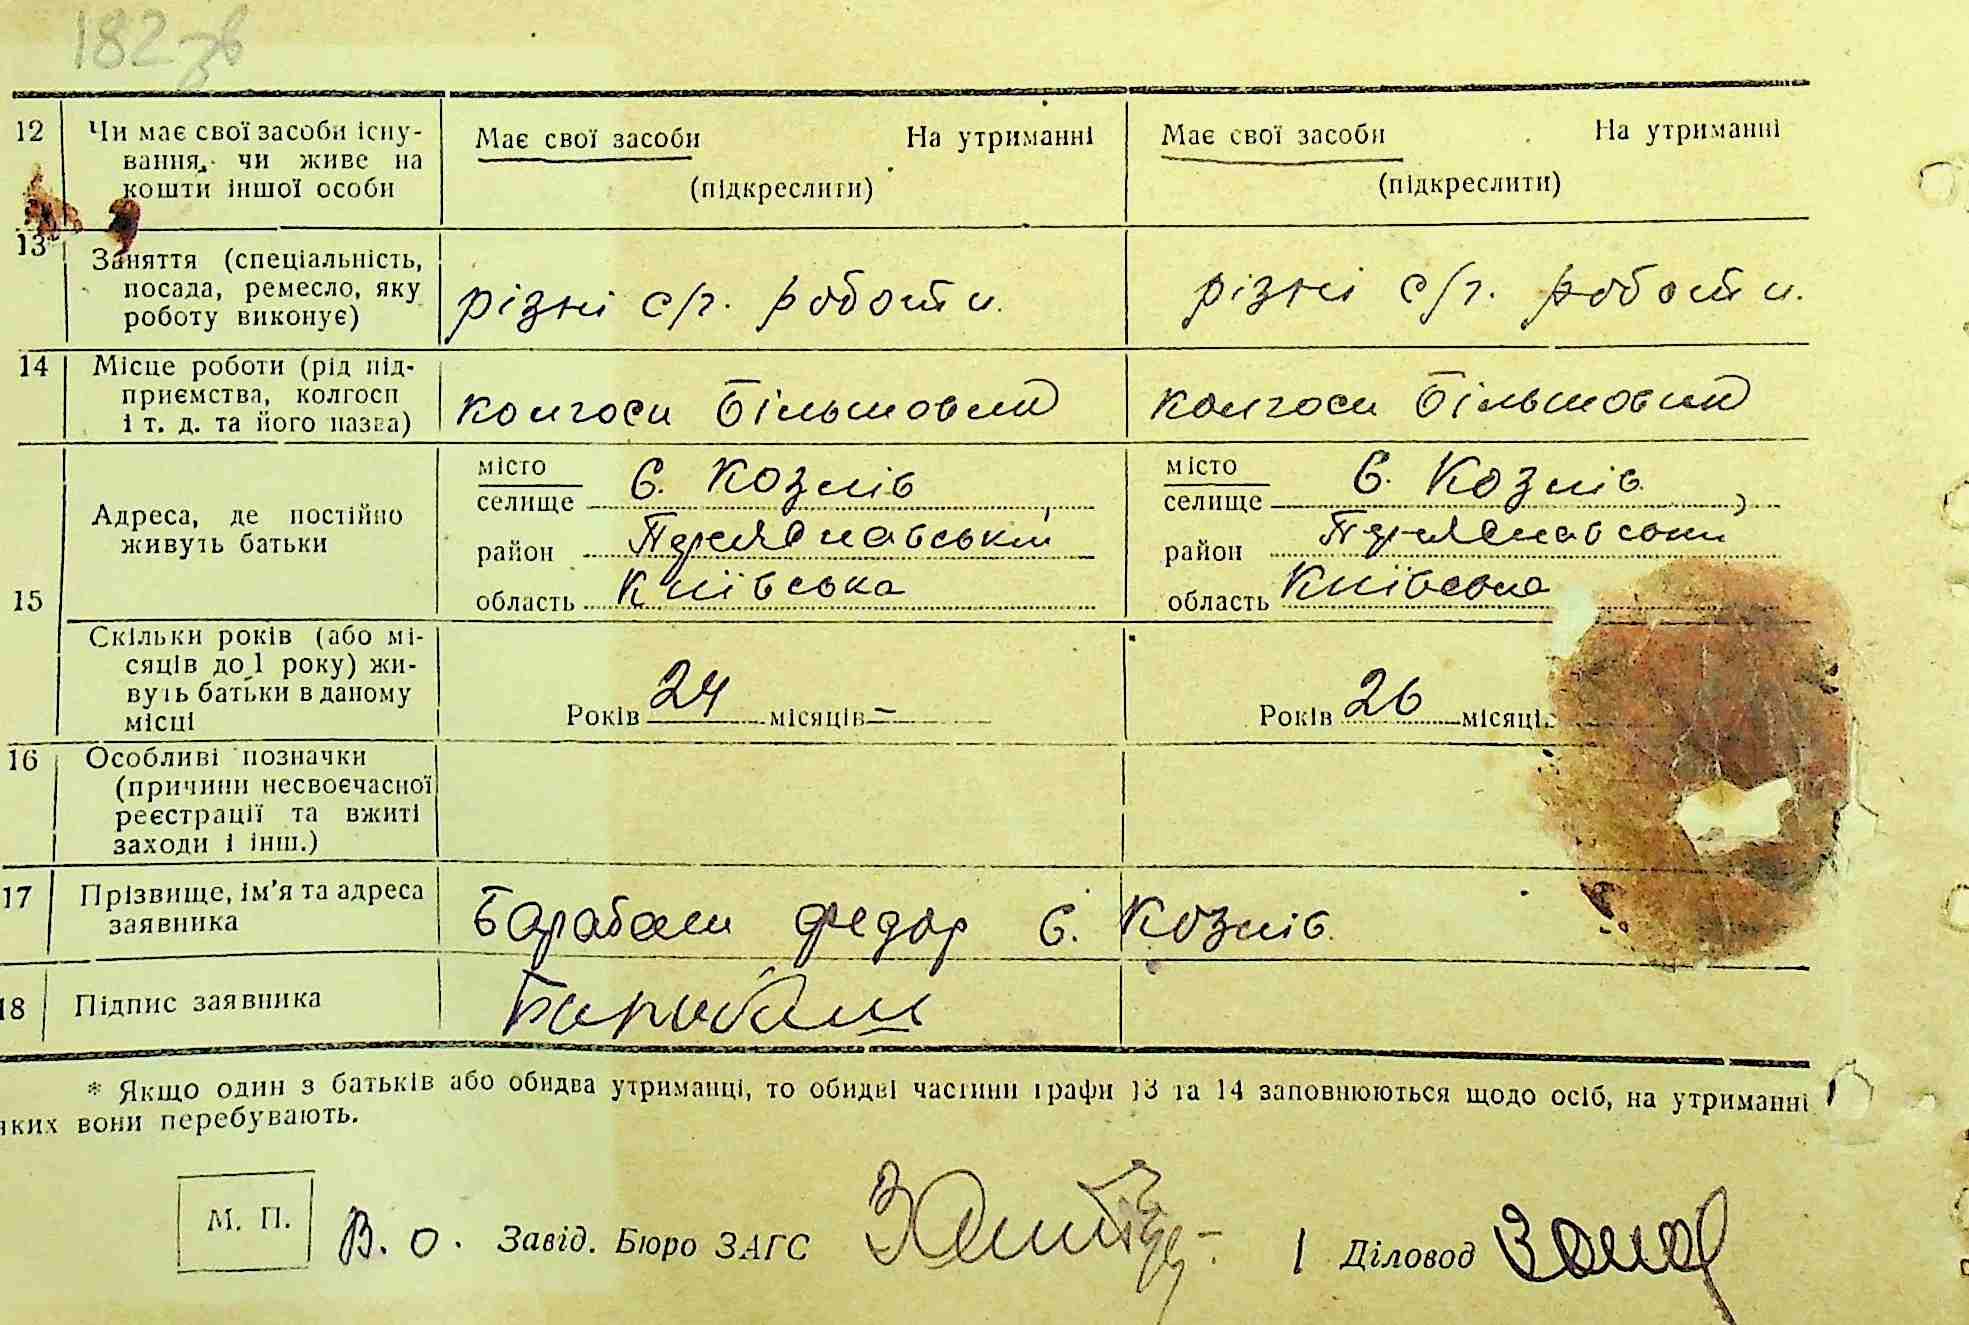 182 зв
12 Чи має свої засоби існу-
вання, чи живе на
кошти іншої особи
Має свої засоби На утриманні
(підкреслити)
Має свої засоби На утриманні
(підкреслити)
13 Заняття (спеціальність,
посада, ремесло, яку
роботу виконує)
різні с/г. роботи.
різні с/г. роботи.
14 Місце роботи (рід під-
приємства, колгосп
і т. д. та його назва)
колгосп Більшовик
колгосп Більшовик
15
Адреса, де постійно
живуть батьки
місто
селище с. Козлів,
район Переяславський
область Київська
місто
селище с. Козлів,
район Переяславський
область Київська
Скільки років (або мі-
сяців до 1 року) жи-
вуть батьки в даному
місці
Років 24 місяців –
Років 26 місяці
16 Особливі позначки
(причини несвоєчасної
реєстрації та вжиті
заходи і інш.)
17 Прізвище, ім'я та адреса
заявника
Барабаш Федор с. Козлів.
18 Підпис заявника
Барабаш
* Якщо один з батьків або обидва утриманці, то обидві частини графи 13 та 14 заповнюються щодо осіб, на утриманні
яких вони перебувають.
М. П.
В. о. Завід. Бюро ЗАГС
Діловод